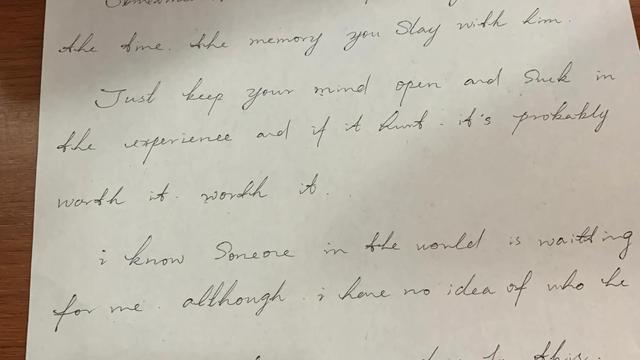 Sometimes
the time. the memory you stay with him.
Just keep your mind open and suck in
the experience and if it hurt. it's probably
worth it. worth it.
i know Someone in the world is waitting
for me. although. i have no idea of who he
this.